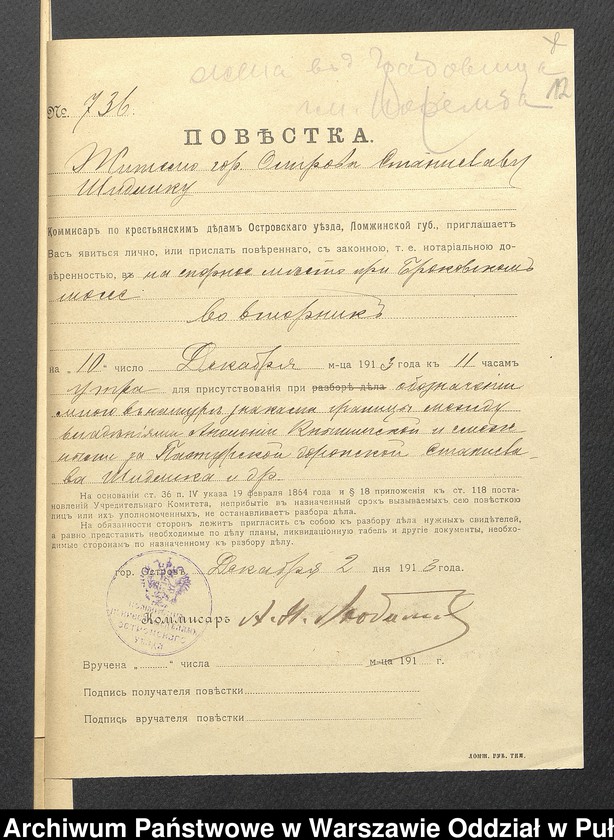 жена въ д. Грабовница
гм. Поремба
12
№ 736.
ПОВѢСТКА.
Жителю гор. Острова Станиславу
Шидлику
Коммисар по крестьянским дѣлам Островскаго уѣзда, Ломжинской губ., приглашает
Вас явиться лично, или прислать повѣреннаго, съ законною, т. е. нотаріальною до-
вѣренностью, на спорное мѣсто при Броковскомъ
шоссе
во вторникъ
на „10“ число Декабря м-ца 1913 года къ 11 часамъ
утра для присутствованія при разборѣ дѣла обозначеніи
мною въ натурѣ знаками границы между
владѣніями Антоніи и
за городской Станисла-
ва Шидлика и др.
На основаніи ст. 36 п. IV указа 19 февраля 1864 года и § 18 приложенія къ ст. 118 поста-
новленій Учредительнаго Комитета, неприбытіе въ назначенный срокъ вызываемыхъ сею повѣсткою
лицъ или ихъ уполномоченныхъ, не останавливаетъ разбора дѣла.
На обязанности сторонъ лежитъ пригласить съ собою къ разбору дѣла нужныхъ свидѣтелей,
а равно представить необходимые по дѣлу планы, ликвидаціонную табель и другіе документы, необхо-
димые сторонамъ по назначенному къ разбору дѣлу.
гор. Островъ Декабря 2 дня 1913 года.
Коммисаръ
Вручена „ “ числа м-ца 191 г.
Подпись получателя повѣстки
Подпись вручателя повѣстки
ЛОМЖ. ГУБ. ТИП.
Archiwum Państwowe w Warszawie Oddział w Puł